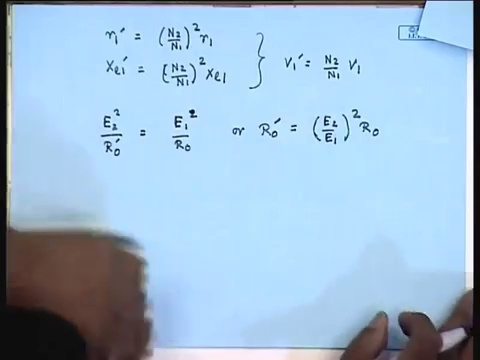 r₁' = (N₂/N₁)² r₁
x_{e1}' = (N₂/N₁)² x_{e1} } V₁' = N₂/N₁ V₁
E₂²/R₀' = E₁²/R₀ or R₀' = (E₂/E₁)² R₀